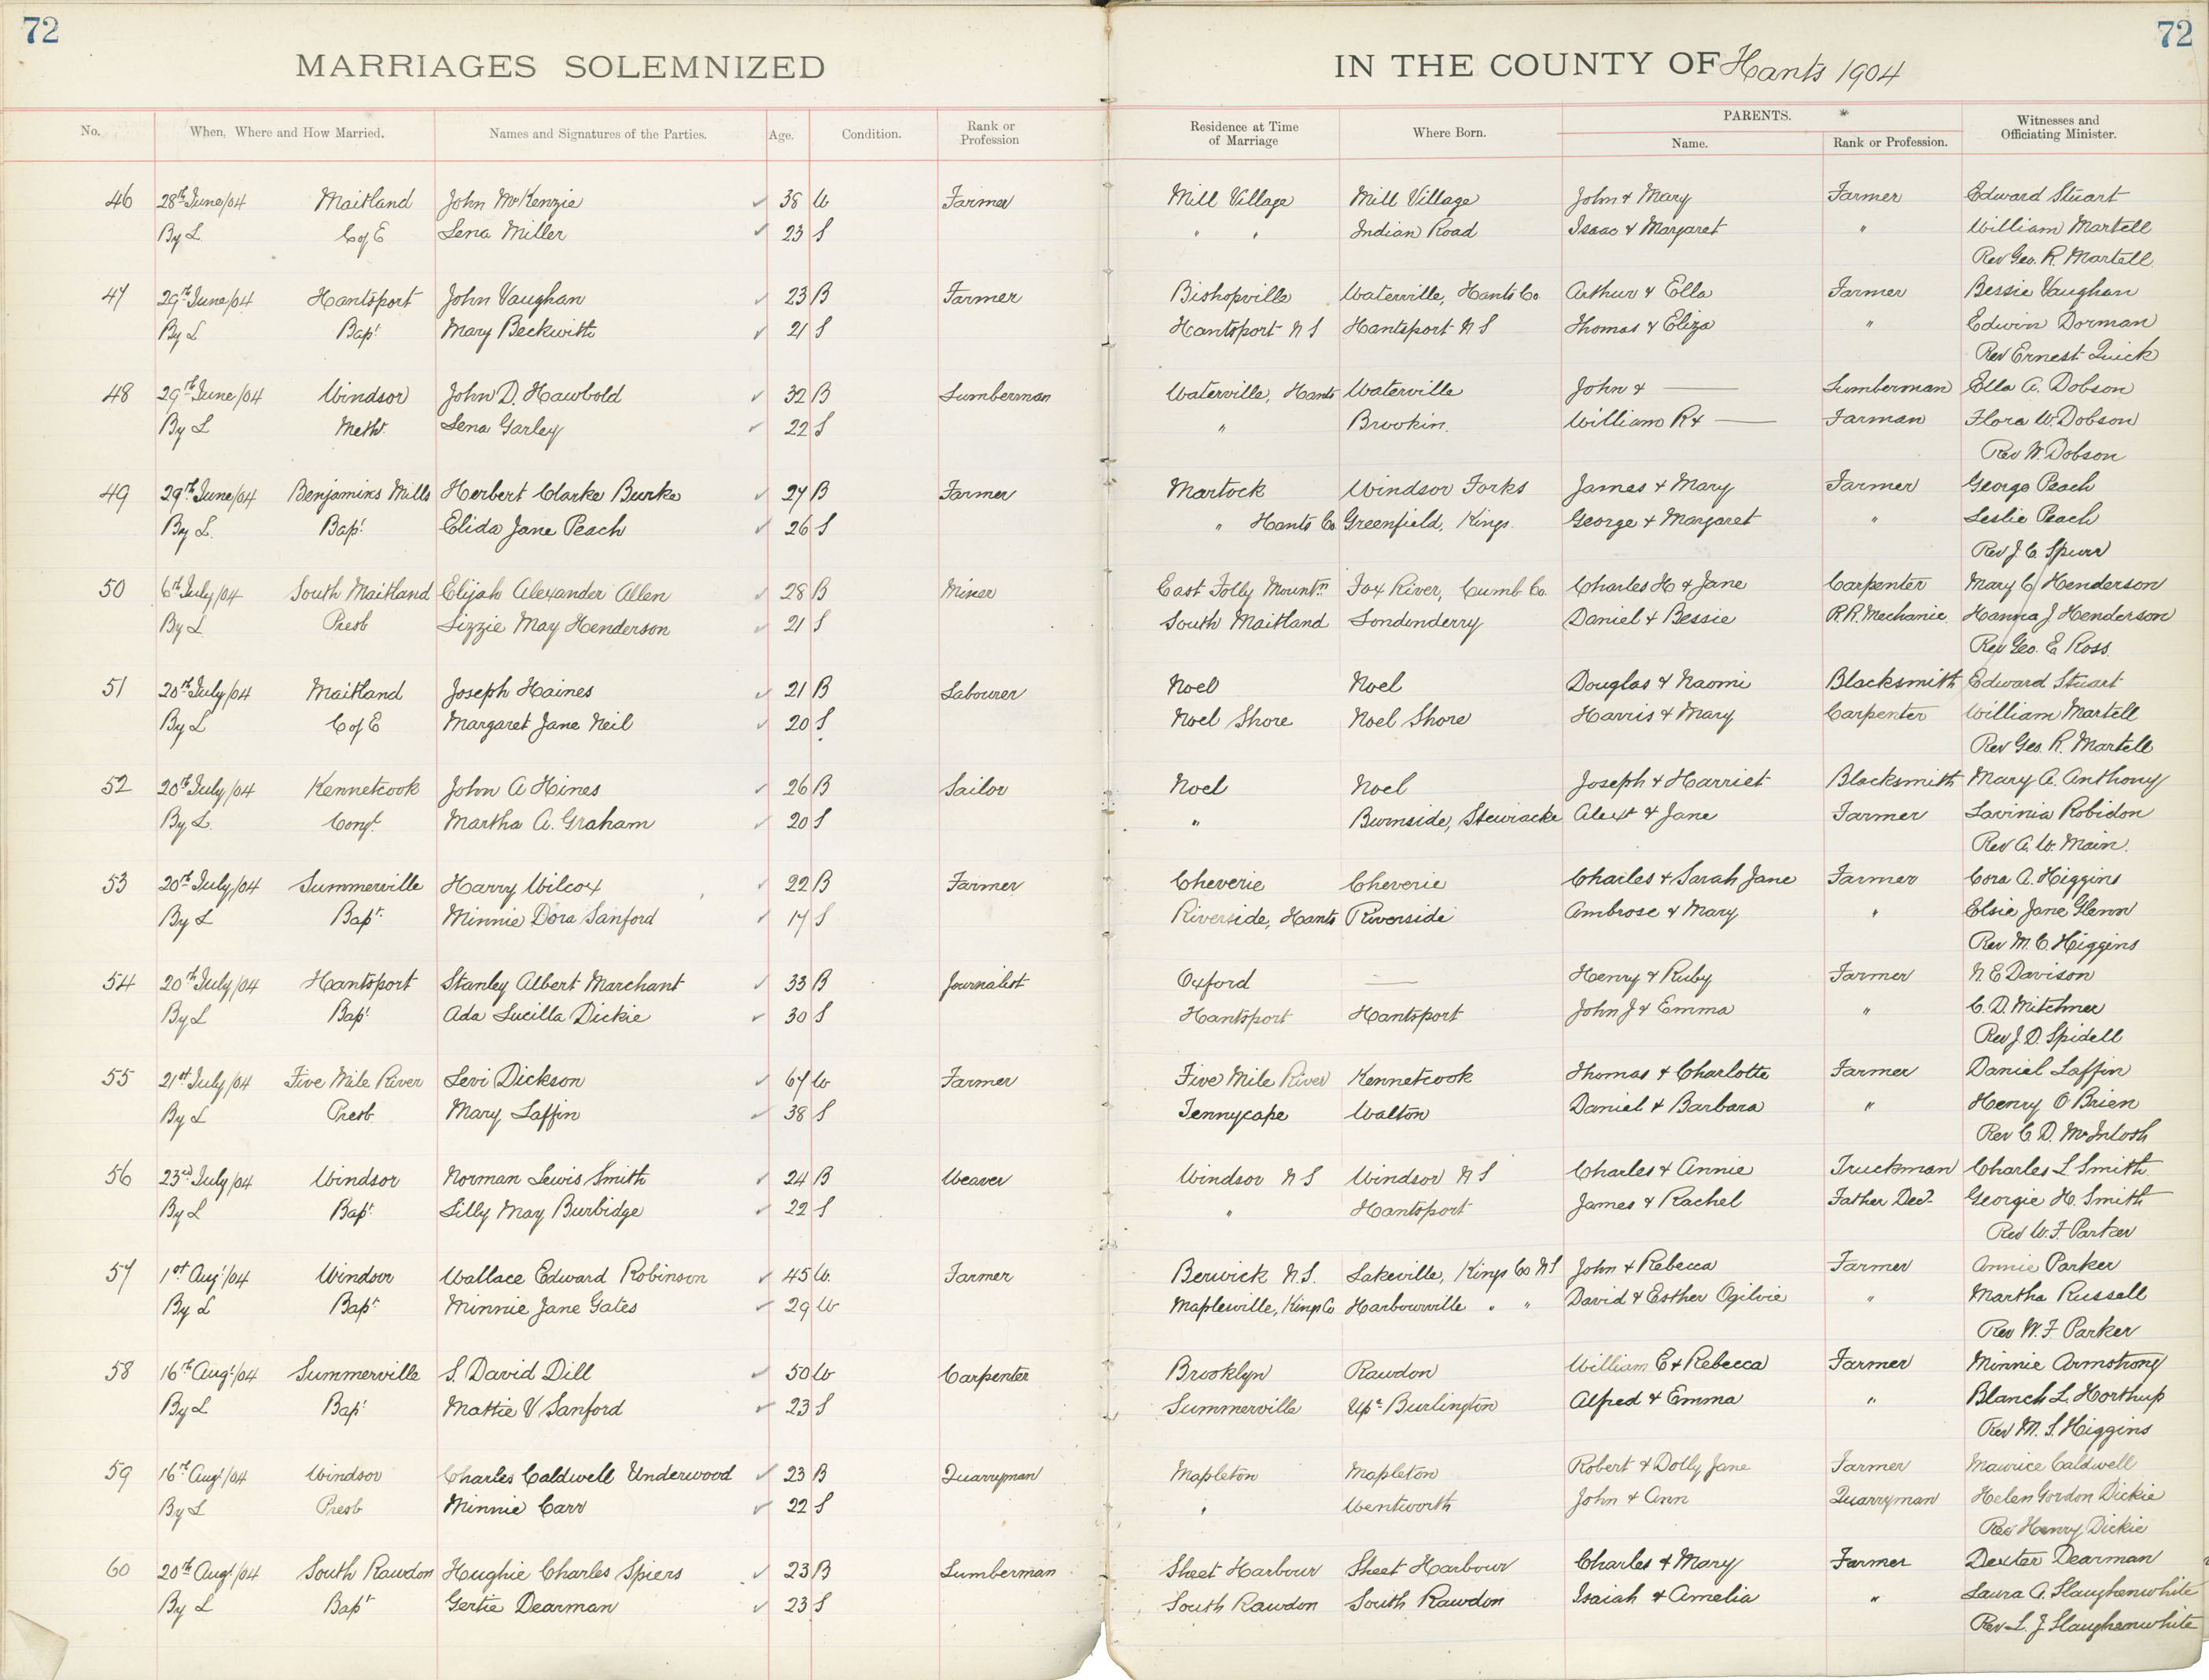 72 72
MARRIAGES SOLEMNIZED IN THE COUNTY OF Hants 1904
No. When, Where and How Married. Names and Signatures of the Parties. Age. Condition. Rank or Profession Residence at Time of Marriage Where Born. PARENTS. Name. Rank or Profession. Witnesses and Officiating Minister.
46 28th June/04 Maitland John McKenzie 38 W Farmer Mill Village Mill Village John & Mary Farmer Edward Stuart
By L C of E Lena Miller 23 S " " Indian Road Isaac & Margaret " William Martell
Rev Geo. R. Martell
47 29th June/04 Hantsport John Vaughan 23 B Farmer Bishopville Waterville, Hants Co Arthur & Ella Farmer Bessie Vaughan
By L Bapt Mary Beckwith 21 S Hantsport N S Hantsport N S Thomas & Eliza " Edwin Dorman
Rev Ernest Quick
48 29th June/04 Windsor John D. Hawbold 32 B Lumberman Waterville, Hants Waterville John & — Lumberman Ella A. Dobson
By L Meth Lena Garley 22 S " Brookin. William R & — Farman Flora W. Dobson
Rev W. Dobson
49 29th June/04 Benjamins Mills Herbert Clarke Burke 27 B Farmer Martock Windsor Forks James & Mary Farmer George Peach
By L. Bapt Elida Jane Peach 26 S " Hants Co Greenfield, Kings. George & Margaret " Leslie Peach
Rev J. C. Spurr
50 6th July/04 South Maitland Elijah Alexander Allen 28 B Miner East Folly Mountn Fox River, Cumb Co. Charles H & Jane Carpenter Mary C Henderson
By L Presb Lizzie May Henderson 21 S South Maitland Londonderry Daniel & Bessie R.R. Mechanic Hanna J Henderson
Rev Geo. E Ross.
51 20th July/04 Maitland Joseph Haines 21 B Labourer Noel Noel Douglas & Naomi Blacksmith Edward Stuart
By L C of E Margaret Jane Neil 20 S Noel Shore Noel Shore Harris & Mary Carpenter William Martell
Rev Geo. R. Martell
52 20th July/04 Kennetcook John A Hines 26 B Sailor Noel Noel Joseph & Harriet Blacksmith Mary A. Anthony
By L. Congl Martha A. Graham 20 S " Burnside, Stewiacke Alexr & Jane Farmer Lavinia Robidon
Rev A. W. Main.
53 20th July/04 Summerville Harry Wilcox 22 B Farmer Cheverie Cheverie Charles & Sarah Jane Farmer Cora A. Higgins
By L Bapt Minnie Dora Sanford 17 S Riverside, Hants Riverside Ambrose & Mary " Elsie Jane Glenn
Rev M. C. Higgins
54 20th July/04 Hantsport Stanley Albert Marchant 33 B Journalist Oxford — Henry & Ruby Farmer N. E Davison
By L Bapt Ada Lucilla Dickie 30 S Hantsport Hantsport John J & Emma " C. D. Mitchner
Rev J. D. Spidell
55 21st July/04 Five Mile River Levi Dickson 67 W Farmer Five Mile River Kennetcook Thomas & Charlotte Farmer Daniel Laffin
By L Presb Mary Laffin 38 S Tennycape Walton Daniel & Barbara " Henry O Brien
Rev C D. McIntosh
56 23rd July/04 Windsor Norman Lewis Smith 24 B Weaver Windsor N S Windsor N S Charles & Annie Truckman Charles L Smith
By L Bapt Lilly May Burbidge 22 S " Hantsport James & Rachel Father Decd Georgie H. Smith
Rev W. F. Parker
57 1st Augt/04 Windsor Wallace Edward Robinson 45 W. Farmer Berwick N.S. Lakeville, Kings Co N S John & Rebecca Farmer Annie Parker
By L Bapt Minnie Jane Gates 29 W Maplesville, Kings Co Harbourville " " David & Esther Ogilvie " Martha Russell
Rev W. F Parker
58 16th Augt/04 Summerville S. David Dill 50 W Carpenter Brooklyn Rawdon William E & Rebecca Farmer Minnie Armstrong
By L Bapt Mattie V Sanford 23 S Summerville Upr Burlington Alfred & Emma " Blanch L. Northup
Rev M. S. Higgins
59 16th Augt/04 Windsor Charles Caldwell Underwood 23 B Quarryman Mapleton Mapleton Robert & Dolly Jane Farmer Maurice Caldwell
By L Presb Minnie Carr 22 S " Wentworth John & Ann Quarryman Helen Gordon Dickie
Rev Henry Dickie
60 20th Augt/04 South Rawdon Hughie Charles Spiers 23 B Lumberman Sheet Harbour Sheet Harbour Charles & Mary Farmer Dexter Dearman
By L Bapt Gertie Dearman 23 S South Rawdon South Rawdon Isaiah & Amelia " Laura A. Slaughenwhite
Rev L. J Slaughenwhite